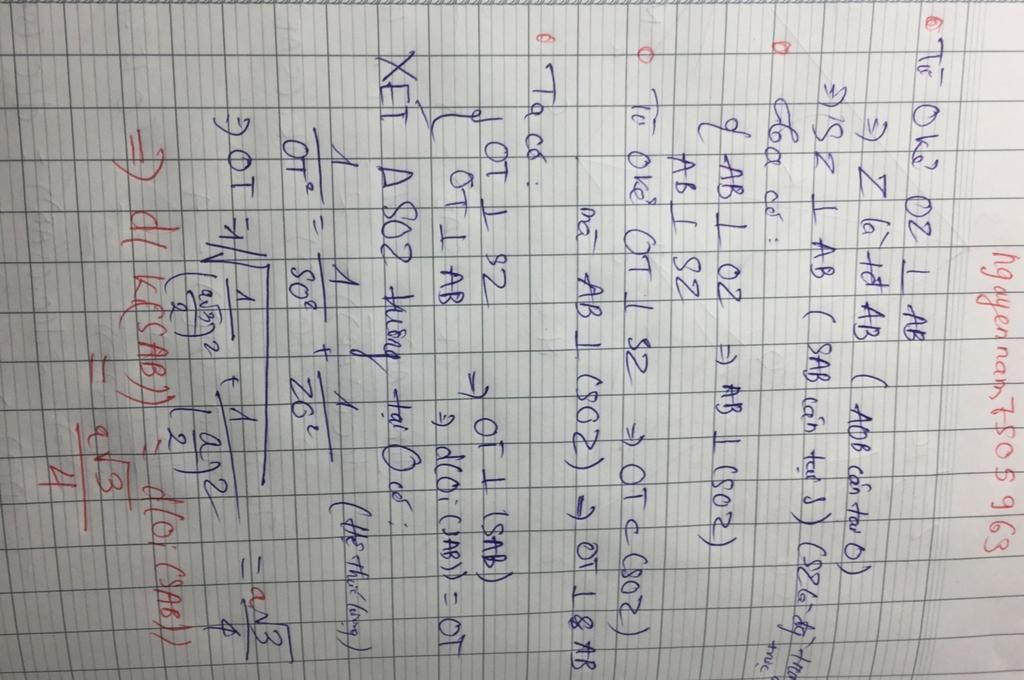 nguyennam7505963
Từ O kẻ OZ ⊥ AB
⇒ Z là tđ AB ( AOB cân tại O)
⇒ SZ ⊥ AB ( SAB cân tại S) (SZ là đg trung trực
Ta có:
{ AB ⊥ OZ ⇒ AB ⊥ (SOZ)
AB ⊥ SZ
Từ O kẻ OT ⊥ SZ ⇒ OT ⊂ (SOZ)
mà AB ⊥ (SOZ) ⇒ OT ⊥ AB
Ta có:
{ OT ⊥ SZ ⇒ OT ⊥ (SAB)
OT ⊥ AB ⇒ d(O;(SAB)) = OT
XÉT Δ SOZ vuông tại O có:
1/OT² = 1/SO² + 1/ZO² (Hệ thức lượng)
⇒ OT = 1/√(1/(a√3/2)² + 1/(a/2)²) = a√3/4
⇒ d( K(SAB)) = d(O;(SAB))
= a√3/4